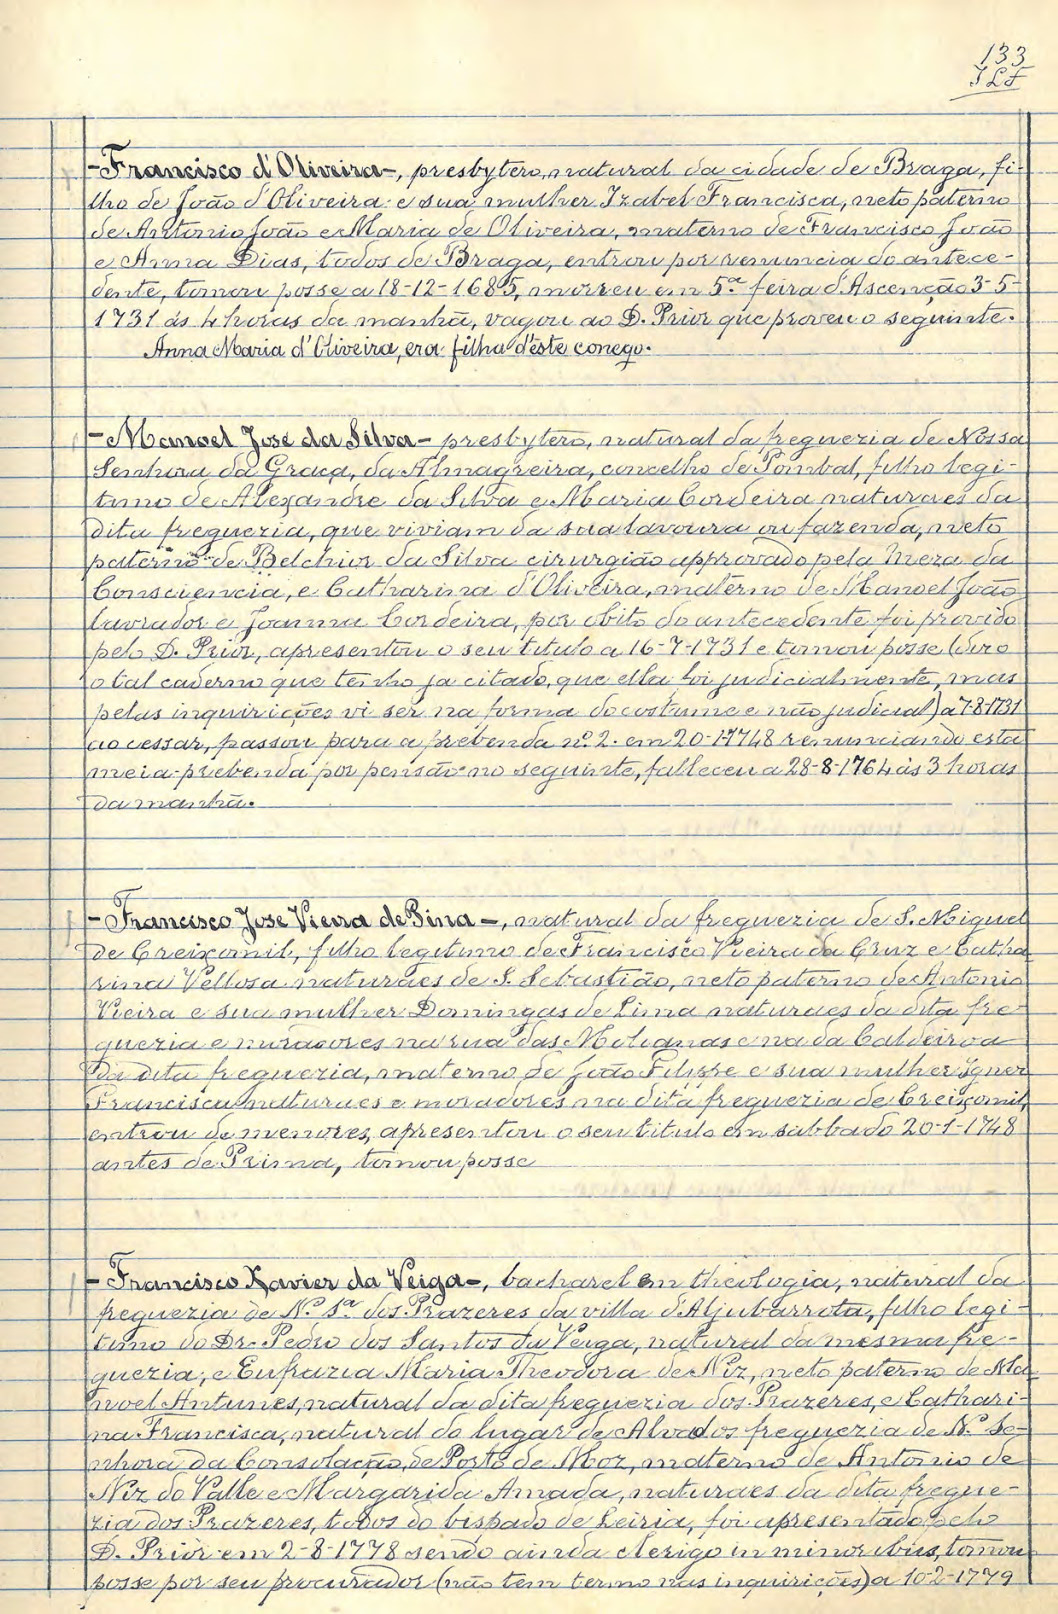 133
JLF
-Francisco d'Oliveira-, presbytero, natural da cidade de Braga, fi-
lho de João d'Oliveira e sua mulher Izabel Francisca, neto paterno
de Antonio João e Maria de Oliveira, materno de Francisco João
e Anna Dias, todos de Braga, entrou por renuncia do antece-
dente, tomou posse a 18-12-1685, morreu em 5.ª feira d'Ascenção 3-5-
1731 ás 4 horas da manhã, vagou ao D. Prior que proveu o seguinte.
Anna Maria d'Oliveira, era filha d'este conego.
-Manoel José da Silva- presbytero, natural da freguezia de Nossa
Senhora da Graça, da Almagreira, concelho de Pombal, filho legi-
timo de Alexandre da Silva e Maria Cordeira naturaes da
dita freguezia, que viviam da sua lavoura ou fazenda, neto
paterno de Belchior da Silva cirurgião approvado pela Meza da
Consciencia, e Catharina d'Oliveira, materno de Manoel João
lavrador e Joanna Cordeira, por obito do antecedente foi provido
pelo D. Prior, apresentou o seu titulo a 16-7-1731 e tomou posse (diz o
o tal caderno que tenho ja citado, que ella foi judicialmente, mas
pelas inquirições vi ser na forma do costume e não judicial) a 7-8-1731
ao cessar, passou para a prebenda nº. 2. em 20-1-1748 renunciando esta
meia-prebenda por pensão no seguinte, falleceu a 28-8-1764 ás 3 horas
da manhã.
-Francisco José Vieira de Pina-, natural da freguezia de S. Miguel
de Creixomil, filho legitimo de Francisco Vieira da Cruz e Catha
rina Vellosa naturaes de S. Sebastião, neto paterno de Antonio
Vieira e sua mulher Domingas de Lima naturaes da dita fre-
guezia e moradores na rua das Molianas e na da Caldeiroa
da dita freguezia, materno de João Filippe e sua mulher Ignez
Francisca naturaes e moradores na dita freguezia de Creixomil,
entrou de menores, apresentou o seu titulo em sabbado 20-1-1748
antes de Prima, tomou posse
-Francisco Xavier da Veiga-, bacharel em theologia, natural da
freguezia de N.ª S.ª dos Prazeres da villa d'Aljubarrota, filho legi-
timo do Dr. Pedro dos Santos da Veiga, natural da mesma fre-
guezia, e Eufrazia Maria Theodora de Niz, neto paterno de Ma
noel Antunes, natural da dita freguezia dos Prazeres, e Cathari-
na Francisca, natural do lugar de Alvados freguezia de N.ª Se-
nhora da Consolação, de Porto de Moz, materno de Antonio de
Niz do Valle e Margarida Amada, naturaes da dita fregue-
zia dos Prazeres, todos do bispado de Leiria, foi apresentado pelo
D. Prior em 2-8-1778 sendo ainda clerigo in minoribus, tomou
posse por seu procurador (não tem termo nas inquirições) a 10-2-1779